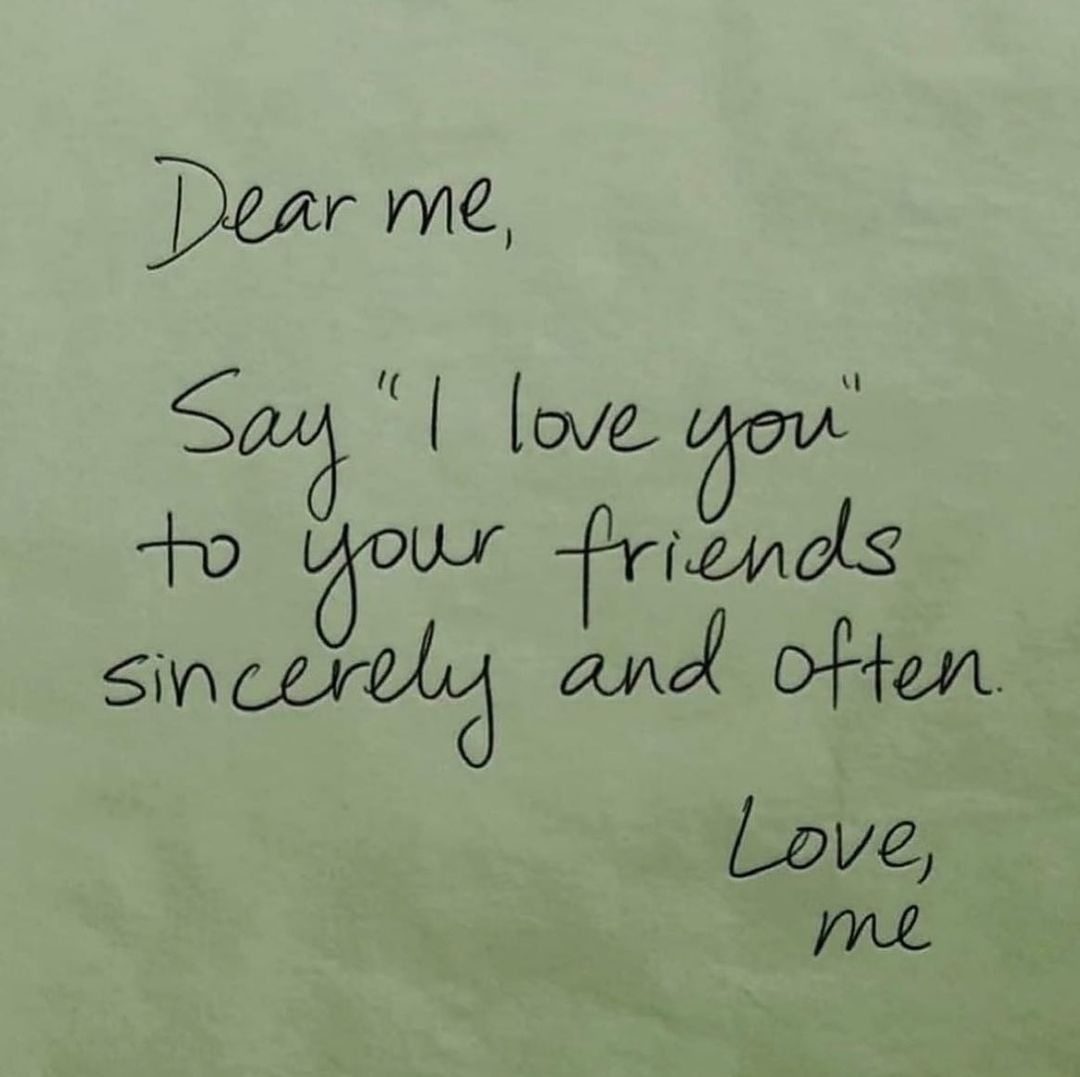 Dear me,
Say "I love you"
to your friends
sincerely and often.
Love,
me